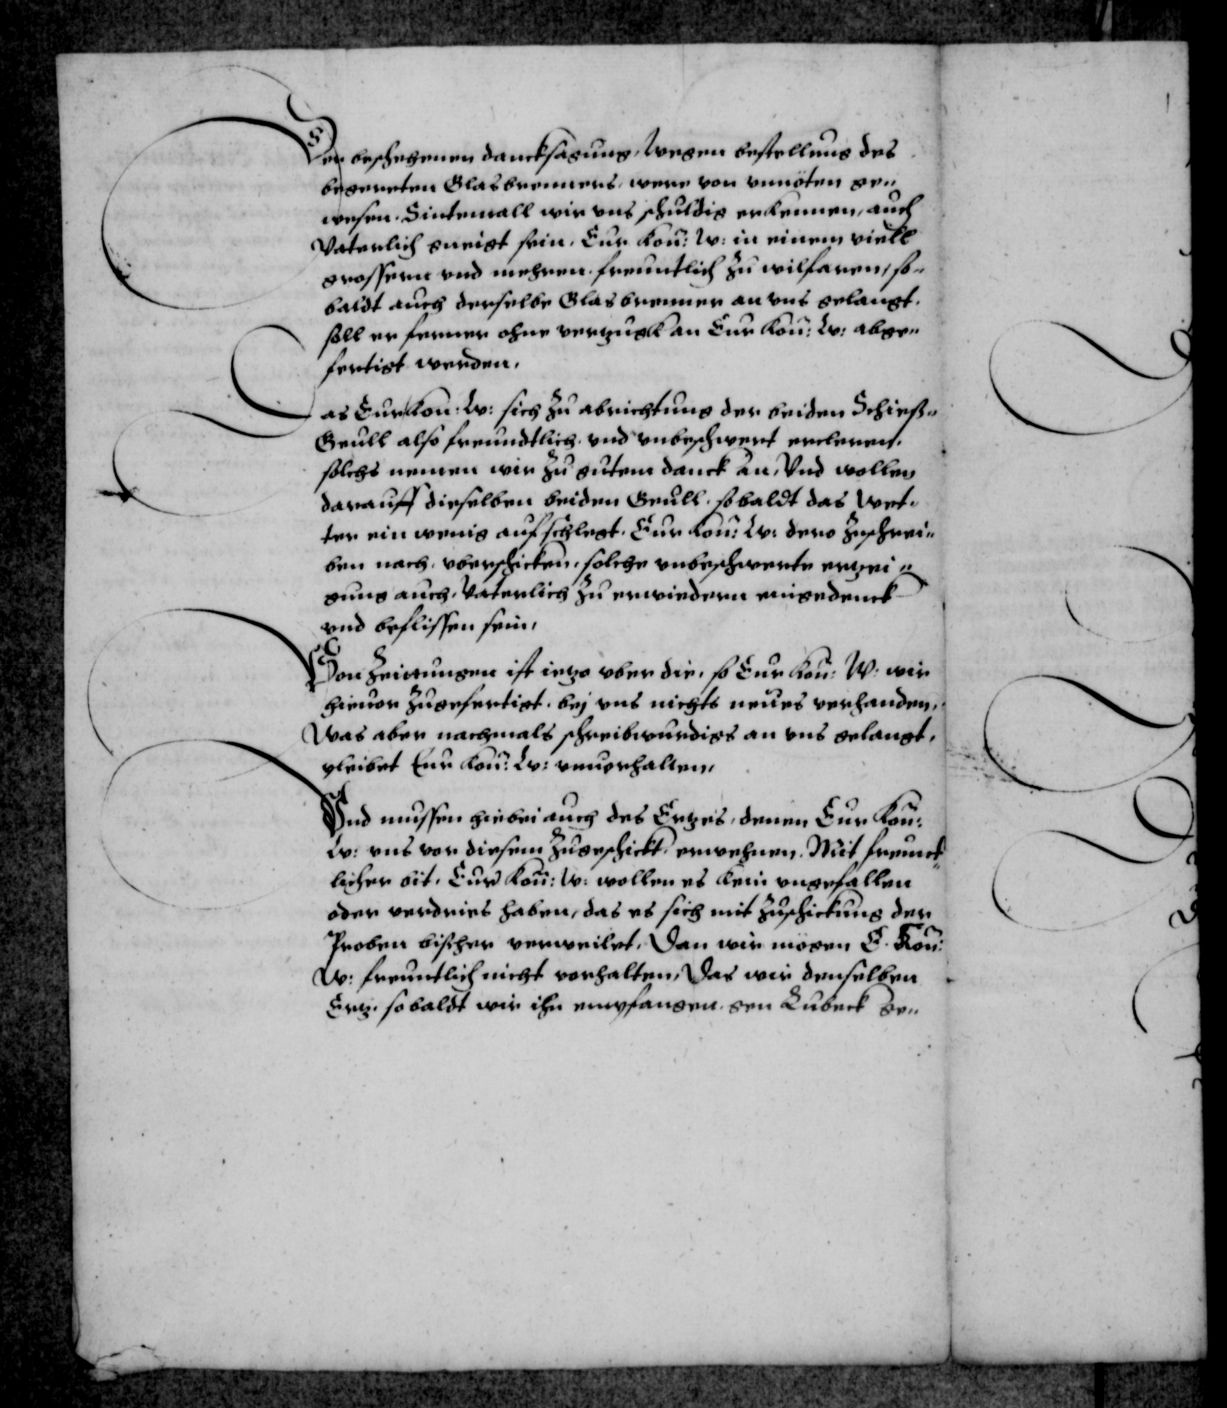 Der beschehenen dancksagung, Wegen bestellung des
begerten Glasbrenners, were von unnöten ge„
wesen. Sintemall wir uns schuldig erkennen, auch
Vaterlich gneigt sein, Eur Kön: W: in einem viell
grossern und mehren freuntlich zu wilfaren, so„
baldt auch derselbe Glasbrenner an uns gelangt,
soll er ferner ohne verzugk an Eur Kön: W: abge„
fertigt werden,
Das Eur Kön: W: sich zu abrichtung der beiden Schieß„
Geull also freundtlich und unbeschwert ercleren,
solchs nemen wir zu gutem danck an, Und wollen
darauff dieselben beiden Geull, sobaldt das Wet„
ter ein wenig aufschlegt, Eur Kön: W: dero zuschrei„
ben nach, uberschicken, solche unbeschwerte erzei„
gung auch, Vaterlich zu erwiedern eingedenck
und beflissen sein,
Von Zeittungen ist ietzo uber die, so Eur Kön: W: wir
hievor zugefertigt, bej uns nichts neues verhanden,
Was aber nachmals schreibwurdigs an uns gelangt,
pleibet Eur Kön: W: unvorhalten,
Und mussen hiebei auch des Ertzes, denen Eur Kön:
W: uns vor diesem zugeschickt, erwehnen, Mit freunt„
licher bit, Eur Kön: W: wollen es kein ungefallen
oder verdries haben, das es sich mit zuschickung der
Proben bisher verweilet, Dan wir mögen E. Kön:
W: freuntlich nicht vorhalten, Das wir denselben
Ertz, sobaldt wir ihn empfangen, gen Lubeck ge„